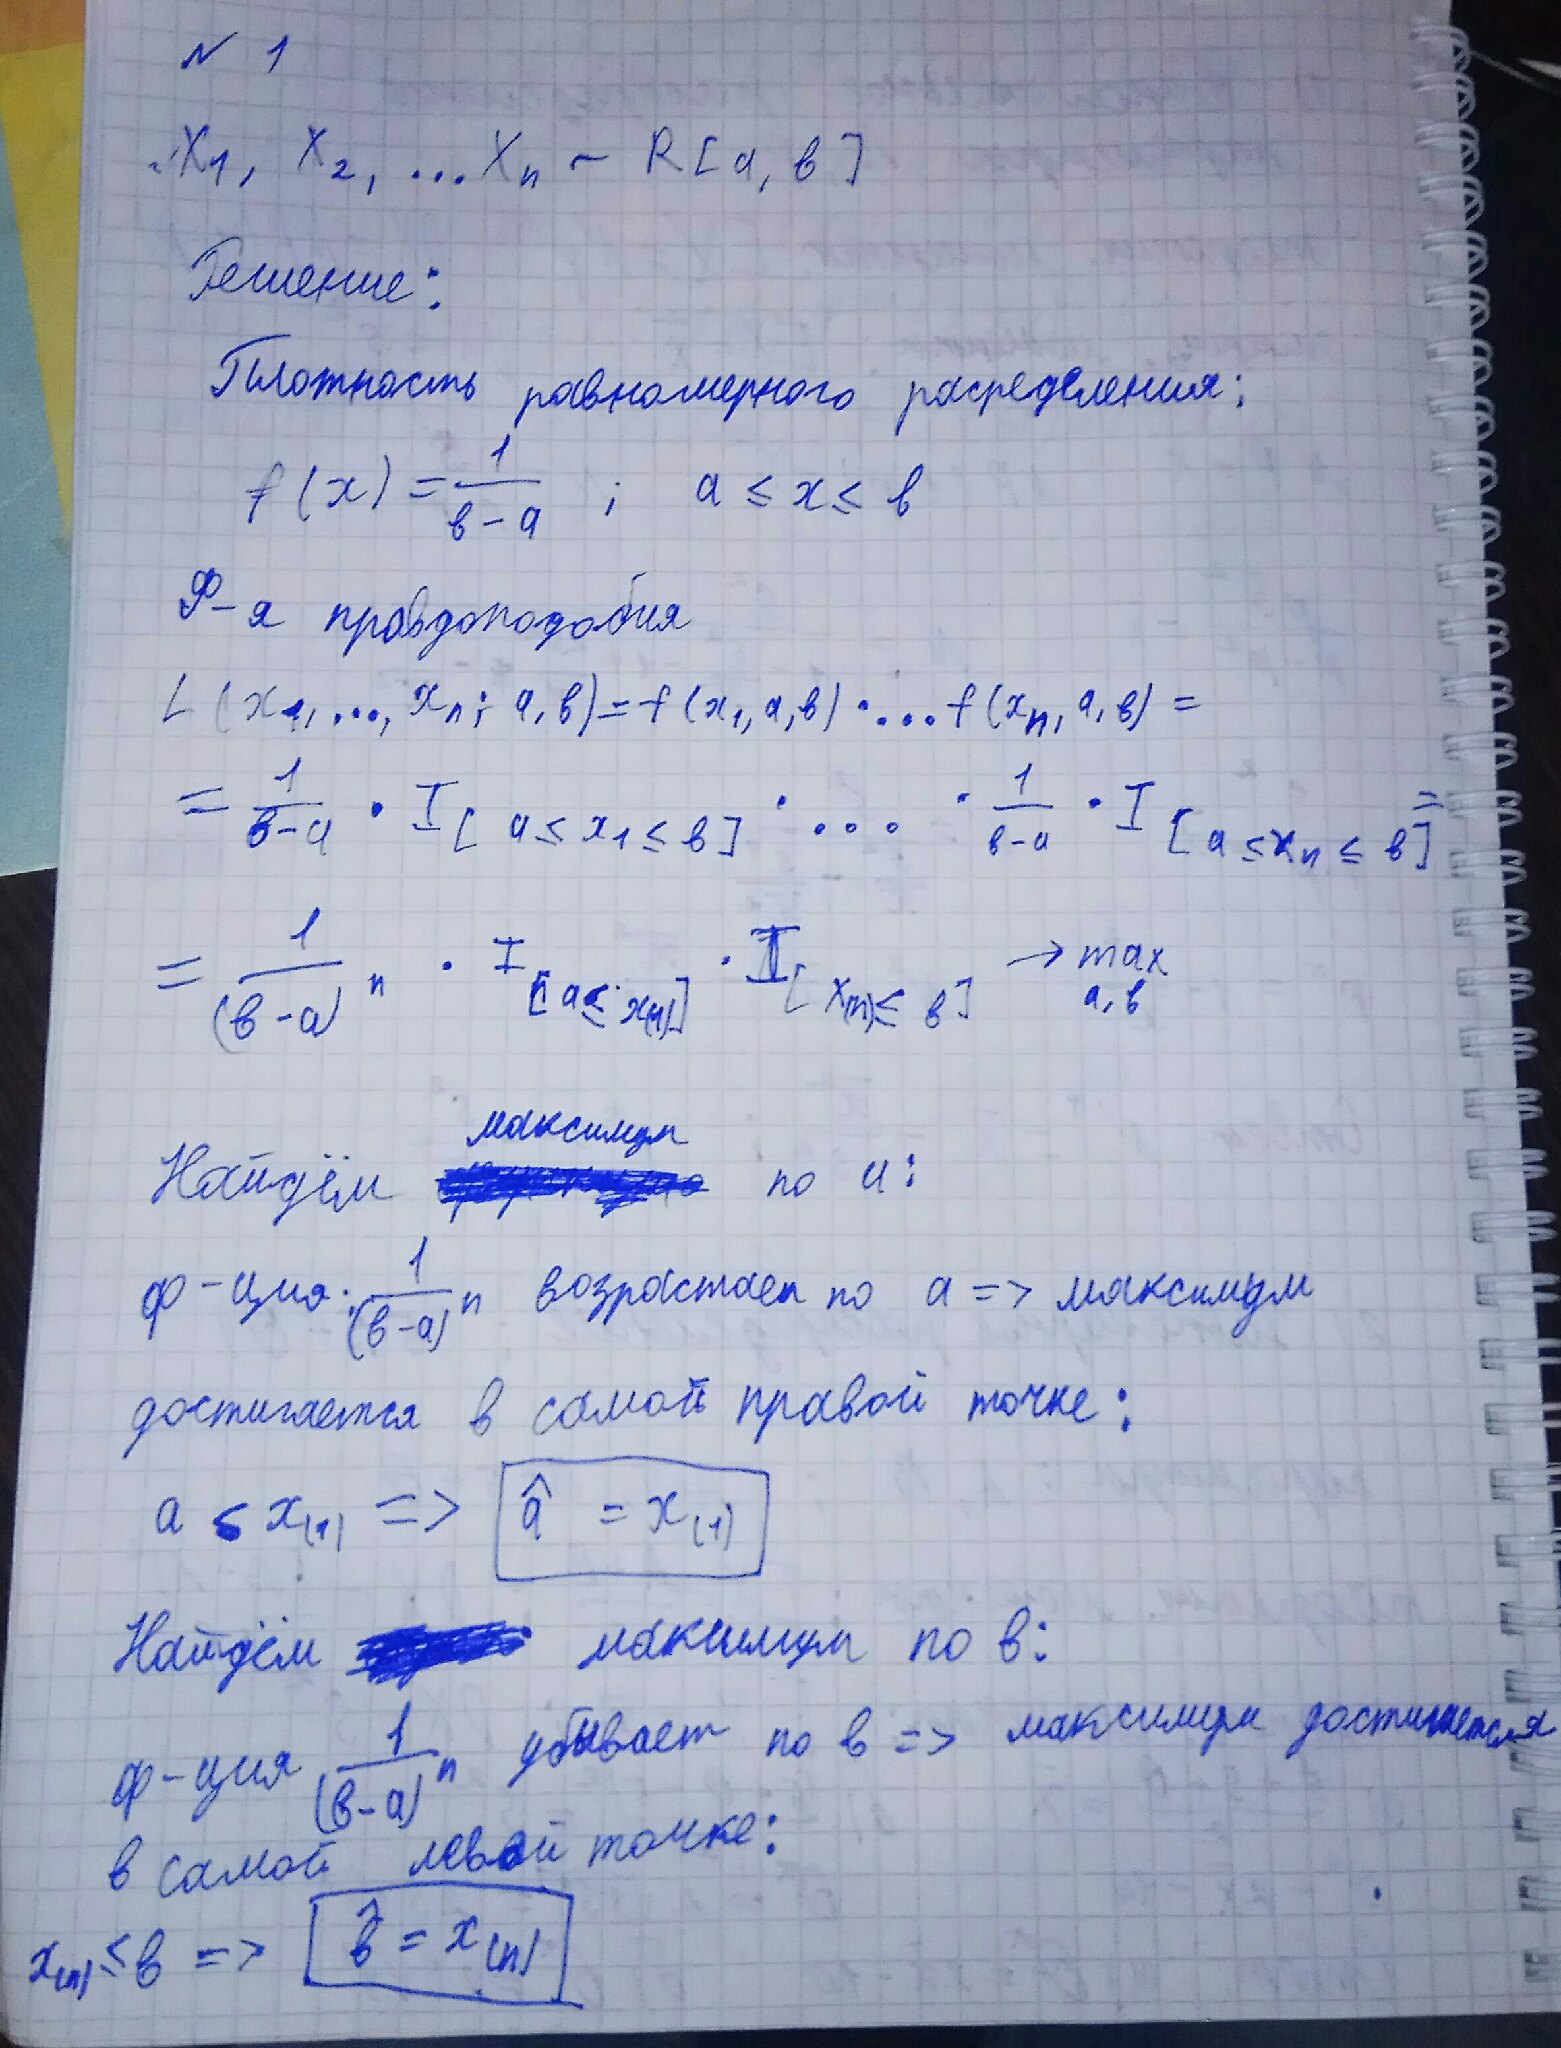 № 1
X₁, X₂, ... Xₙ ~ R[a, b]
Решение:
Плотность равномерного распределения:
f(x) = 1/(b-a) ; a ≤ x ≤ b
Ф-я правдоподобия
L(x₁, ..., xₙ; a, b) = f(x₁, a, b) · ... f(xₙ, a, b) =
= 1/(b-a) · I[a ≤ x₁ ≤ b] · ... · 1/(b-a) · I[a ≤ xₙ ≤ b] =
= 1/(b-a)ⁿ · I[a ≤ x₍₁₎] · I[x₍ₙ₎ ≤ b] → max a, b
Найдём максимум по a:
ф-ция 1/(b-a)ⁿ возрастает по a => максимум
достигается в самой правой точке:
a ≤ x₍₁₎ => â = x₍₁₎
Найдём максимум по b:
ф-ция 1/(b-a)ⁿ убывает по b => максимум достигается
в самой левой точке:
x₍ₙ₎ ≤ b => b̂ = x₍ₙ₎